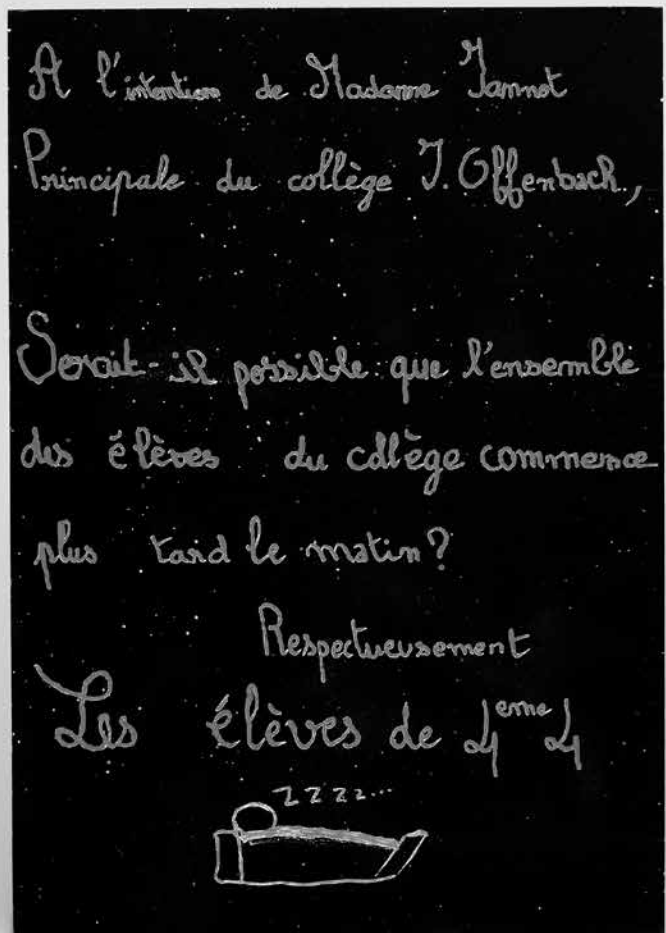 A l'intention de Madame Jamnot
Principale du collège J. Offenbach,
Serait-il possible que l'ensemble
des élèves du collège commence
plus tard le matin?
Respectueusement
Les élèves de 4eme 4
ZZZZ...